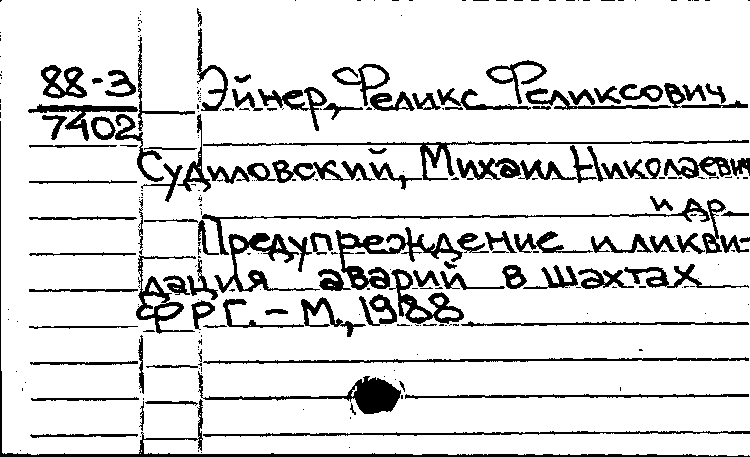 88-3
7402
Эйнер, Феликс Феликсович.
Судиловский, Михаил Николаевич
и др
Предупреждение и ликви-
дация аварий в шахтах
ФРГ. - М., 1988